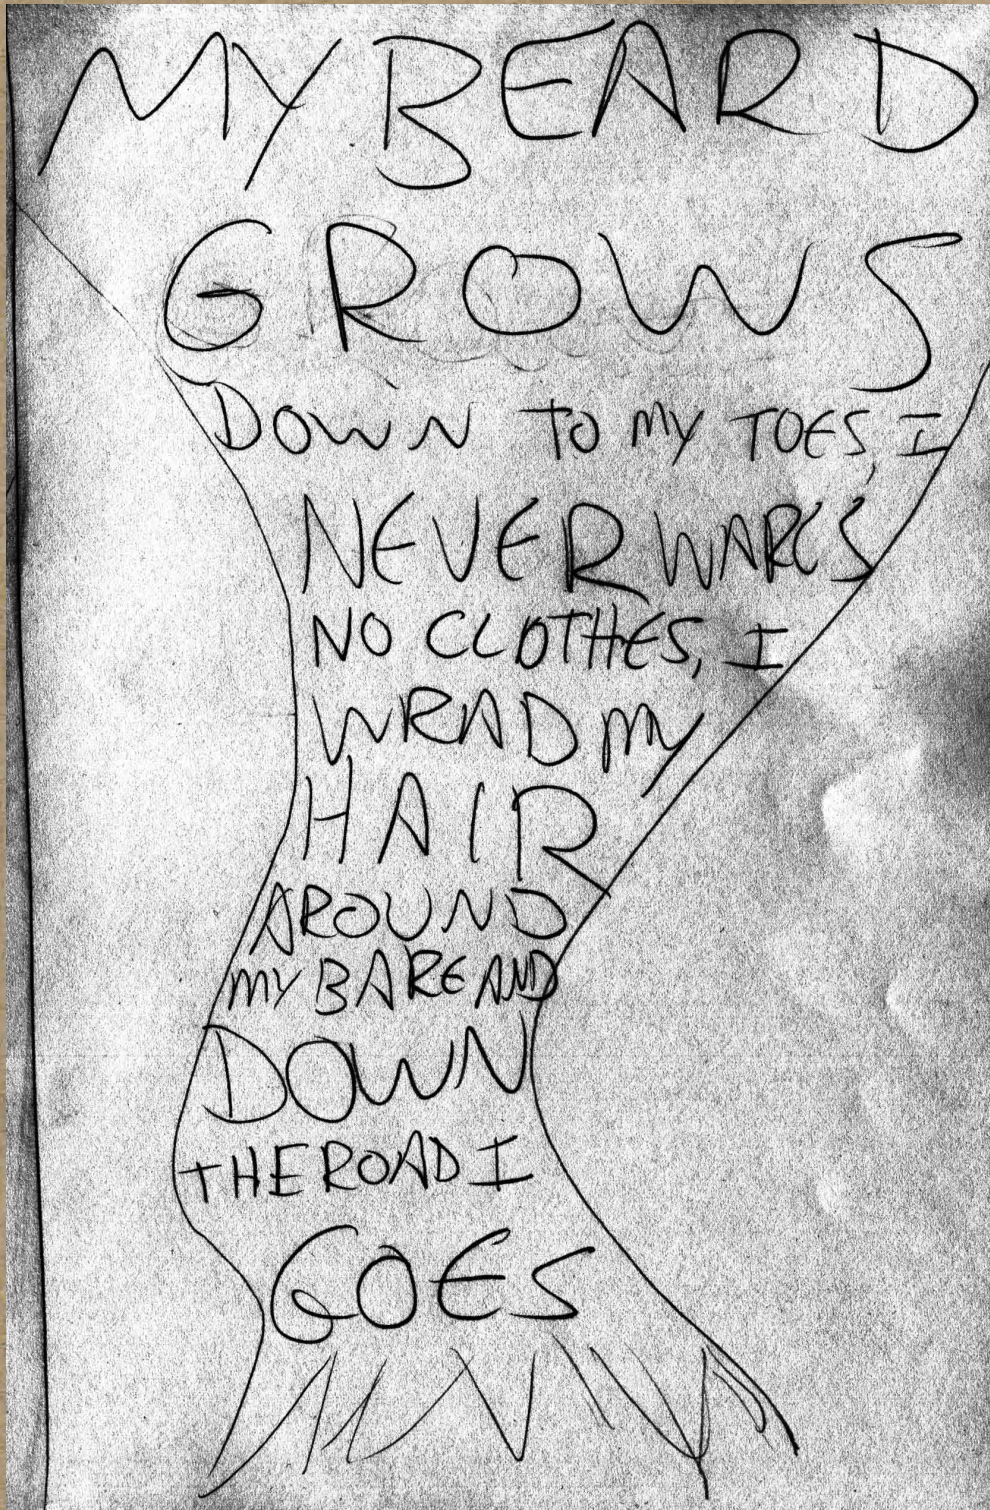 MY BEARD
GROWS
DOWN TO MY TOES I
NEVER WARES
NO CLOTHES, I
WRAD MY
HAIR
AROUND
MY BARE AND
DOWN
THE ROAD I
GOES